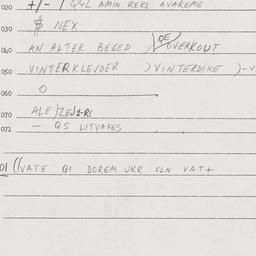 020 +/- 1 Q4L AMIN REKL AVAREME
030 $ NEX
040 AN ALTER BEGED ) OVERKOUT
050 VINTERKLEJDER ) VINTERDIKE )-V
060 O
070 ALE)
071 — QS LITVAKES
01 ((VATE QI DOREM UKR CLN VAT+